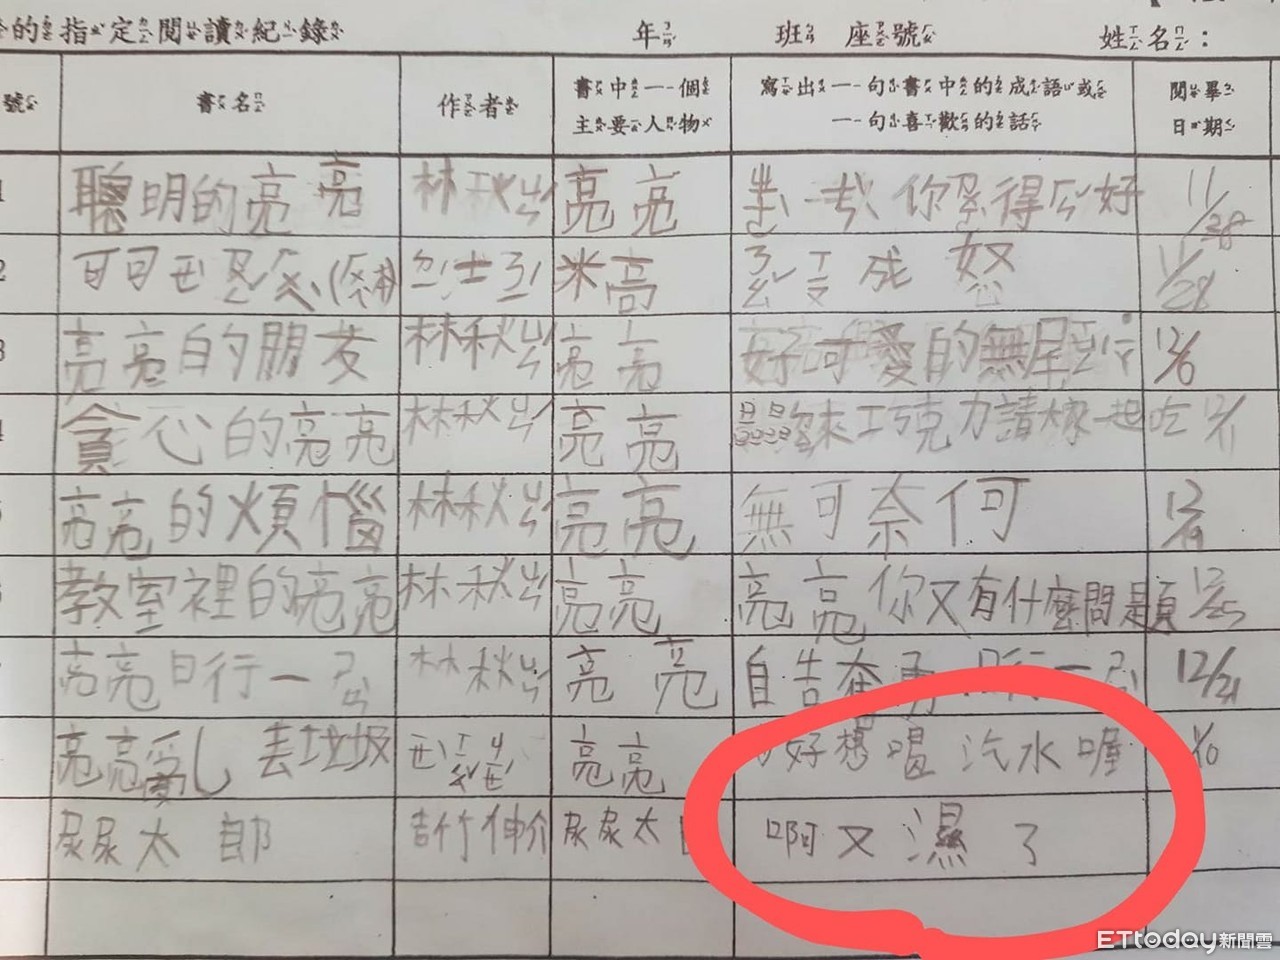 的指定閱讀紀錄 年 班 座號 姓名：
號 書名 作者 書中一個主要人物 寫出一句書中的成語或一句喜歡的話 閱畢日期
聰明的亮亮 林秋ㄓㄣ 亮亮 你 得 好 11/28
可可 米高 成 怒 11/28
亮亮的朋友 林秋ㄓㄣ 亮亮 好可愛的無尾 12/6
貪心的亮亮 林秋ㄓㄣ 亮亮 巧克力請大家一起吃 12/11
亮亮的煩惱 林秋ㄓㄣ 亮亮 無可奈何
教室裡的亮亮 林秋ㄓㄣ 亮亮 亮亮你又有什麼問題 12/25
亮亮日行一ㄕㄢ 林秋ㄓㄣ 亮亮 自告奮勇 日行一 12/21
亮亮亂丟垃圾 亮亮 好想喝汽水喔
尿尿太郎 吉竹伸介 尿尿太 啊又濕了
ETtoday新聞雲